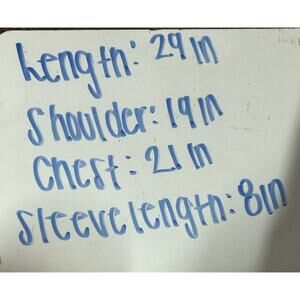 Length: 29in
Shoulder: 19in
Chest: 21in
Sleevelength: 8in